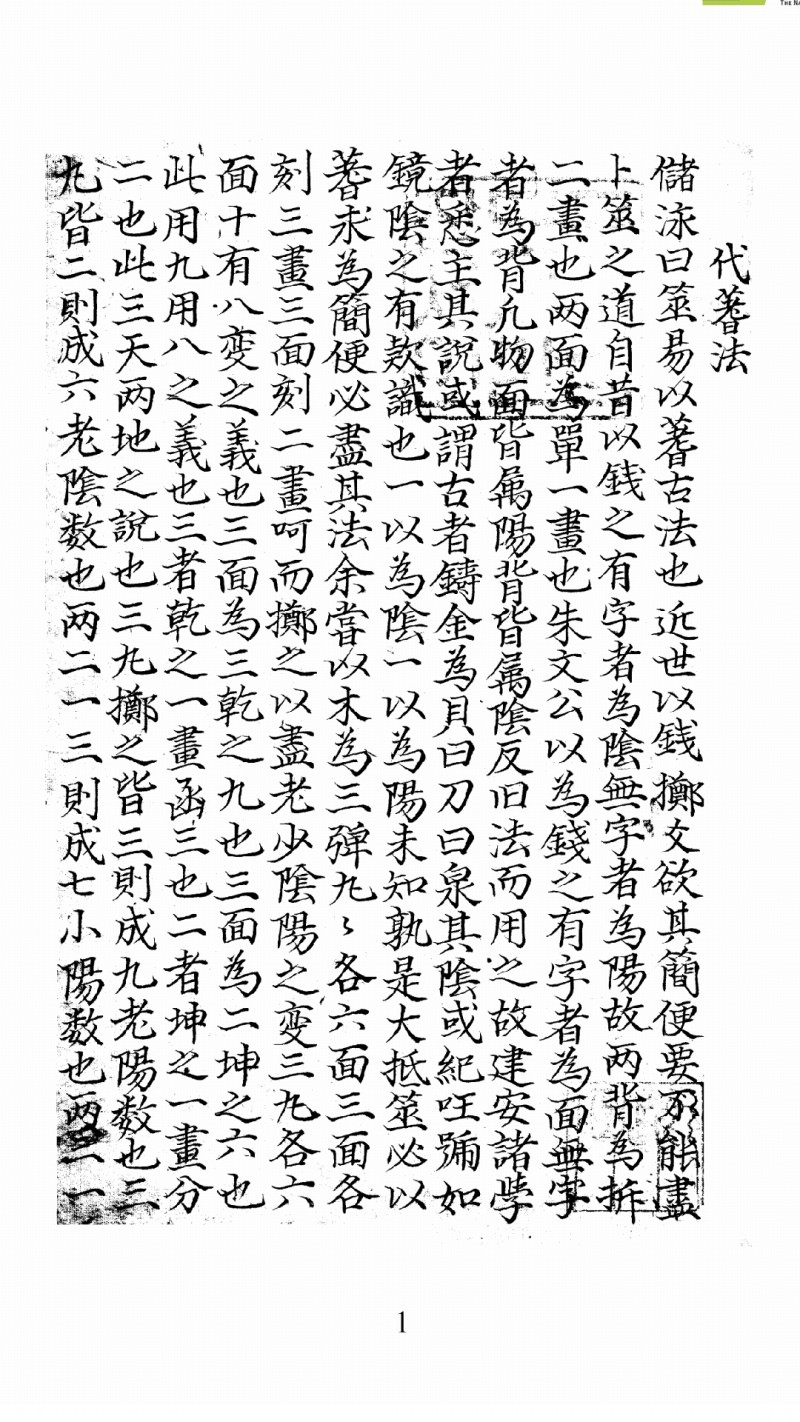 THE NA
代蓍法
儲泳曰筮易以蓍古法也近世以錢擲爻欲其簡便要不能盡
卜筮之道自昔以錢之有字者為陰無字者為陽故两背為拆
二畫也两面為單一畫也朱文公以為錢之有字者為面無字
者為背凡物面皆属陽背皆属陰反旧法而用之故建安諸學
者悉主其說或謂古者鑄金為貝曰刀曰泉其陰或紀囯號如
鏡陰之有款識也一以為陰一以為陽未知孰是大抵筮必以
蓍求為簡便必盡其法余嘗以木為三彈丸〻各六面三面各
刻三畫三面刻二畫呵而擲之以盡老少陰陽之变三丸各六
面十有八变之義也三面為三乾之九也三面為二坤之六也
此用九用八之義也三者乾之一畫函三也二者坤之一畫分
二也此三天两地之說也三丸擲之皆三則成九老陽数也三
丸皆二則成六老陰数也两二一三則成七小陽数也两二一
1